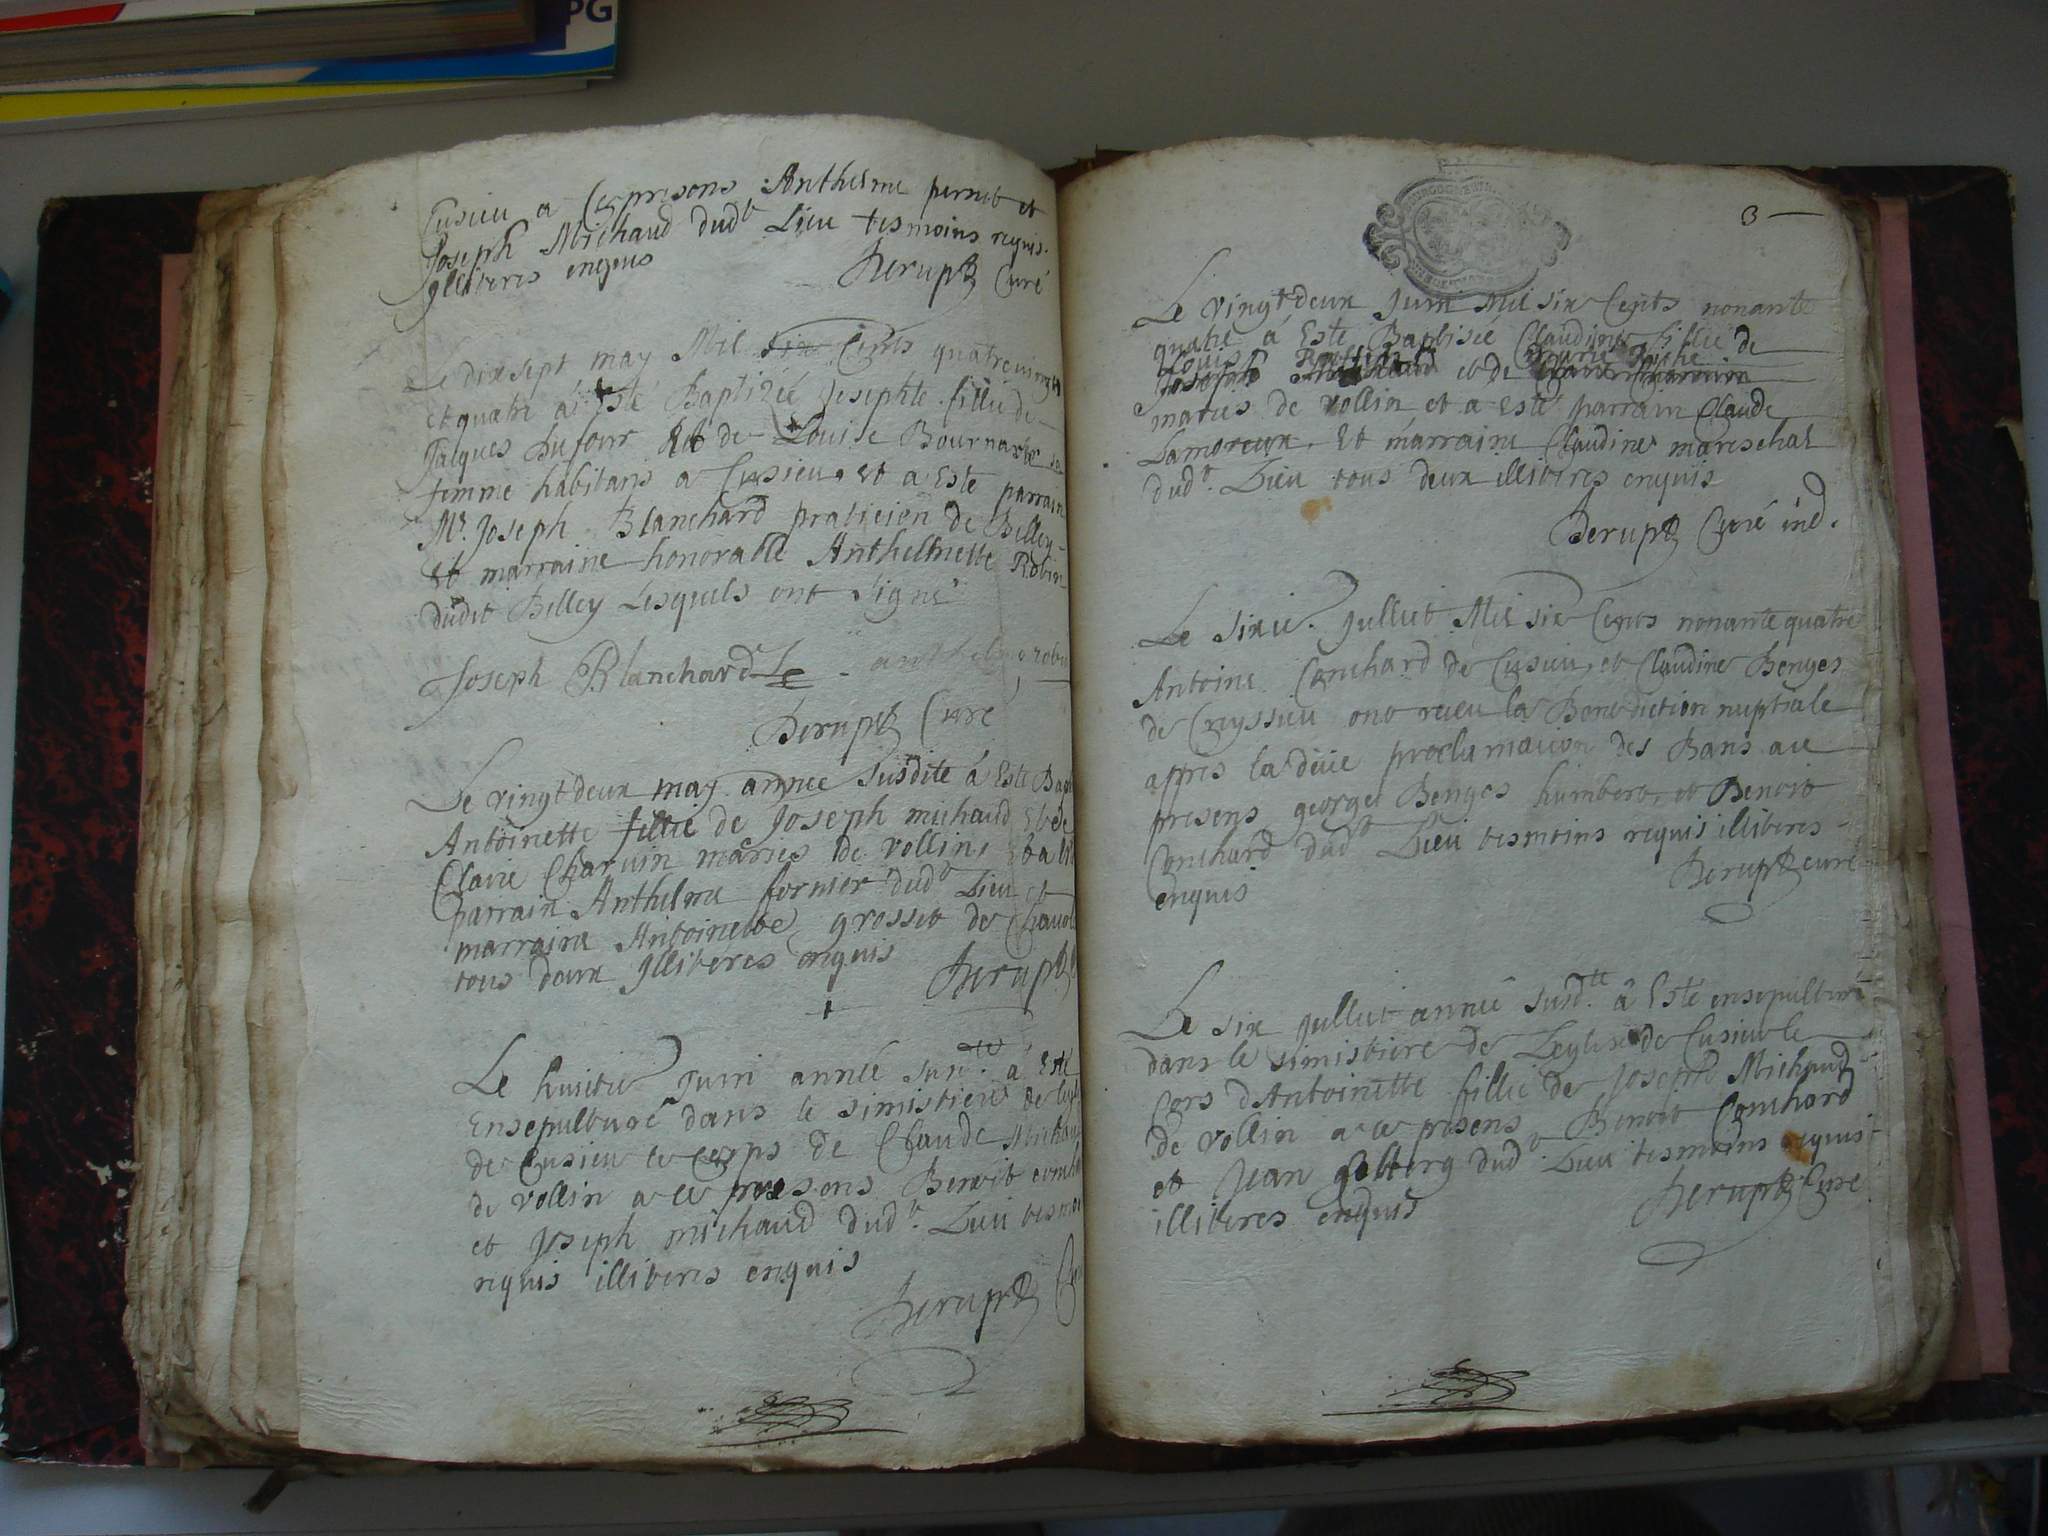 PG
Cusieu a ces presens Anthelme pernet et
Joseph Michaud dud.t Lieu tesmoins requis.
illiteres enquis
Curé
Le dix sept may Mil six Cents quatrevingt
et quatre a esté Baptizée Josephte fillie de
Jacques Dufour Et de Louise Bournarde sa
femme habitans a Cusieu. et a Esté parrain
Mr. Joseph Blanchard praticien de Belley
et marraine honorable Anthelmette Robin
dudit Belley Lesquels ont signé
Joseph Blanchard
Curé
Le vingtdeux may année susdite á Esté
Antoinette fillie de Joseph michaud Et de
Claire Charvin mariés de vollin, Et a
parrain Anthelme fornier dud.t Lieu et
marraine Antoinette grosset de
tous deux Jlliteres enquis
Le huitie Juin année á Esté
Ensepulturé dans le simistiere de
de Cusieu le Corps de Claude
de vollin a ce presens Benoit
et Joseph michaud dud.t Lieu
requis illiteres enquis
3
Le vingtdeux Juin Mil six Cents nonante
quatre á Esté Baptisée Claudine fillie de
Louis et de
mariés de vollin et a Esté parrain Claude
Lamoreux, Et marraine Claudine mareschal
dud.t Lieu tous deux illiteres enquis
Curé ind.
Le sixie. Jullet Mil six Cents nonante quatre
Antoine Conchard de Cusieu, et Claudine Benges
de Ceyssieu ont receu la Benediction nuptiale
appres la deüe proclamation des Bans au
presens george Benges humbert, et Benoit
Conchard dud.t Lieu tesmoins requis illiteres
curé
enquis
Le six Jullet année susd.te á Esté ensepulture
dans le simistiere de Leglise de Cusieu le
Cors dAntoinette fillie de Joseph Michaud
de vollin a ce presens Benoit Conchard
et Jean dud.t Lieu tesmoins requis
Curé
illiteres enquis